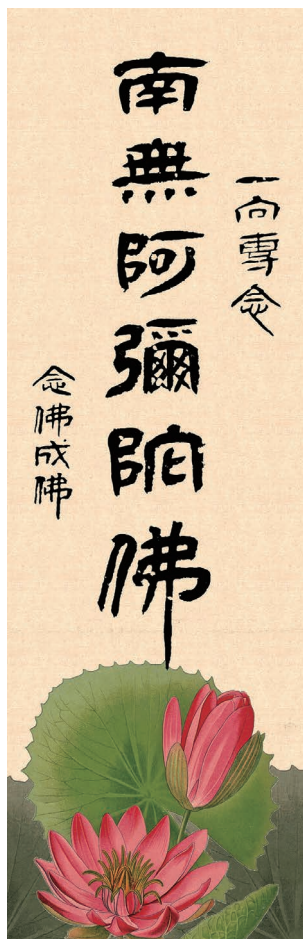 一向專念
南無阿彌陀佛
念佛成佛